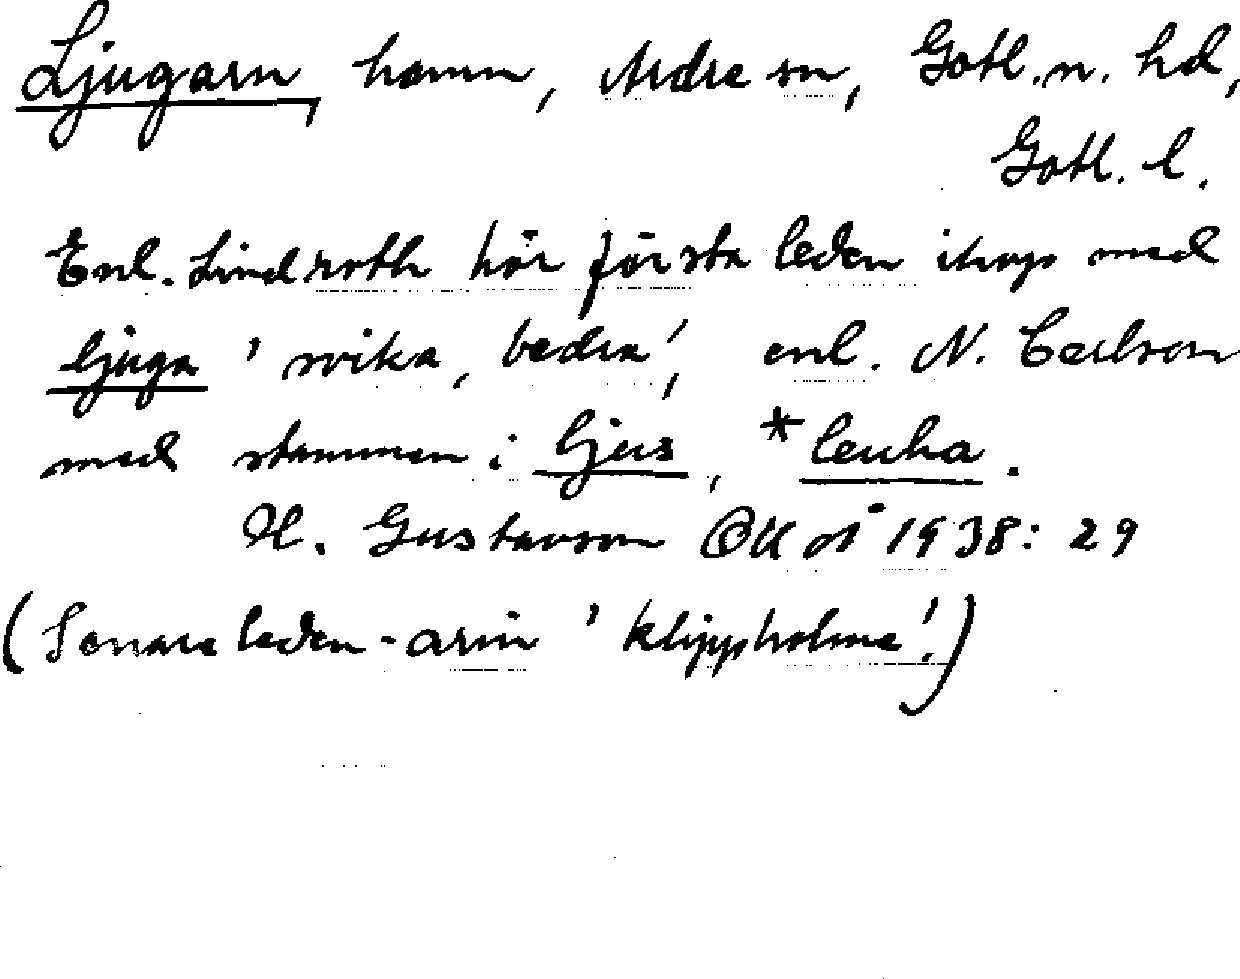 Ljugarn, hamn, Ardre sn, Gotl. n. hd,
Gotl. l.
Enl. Lindroth hör första leden ihop med
ljuga 'svika, bedra', enl. N. Carlsson
med stammen i ljus, *leuha.
H. Gustavson 1938: 29
(Senare leden -arn 'klippholme'.)